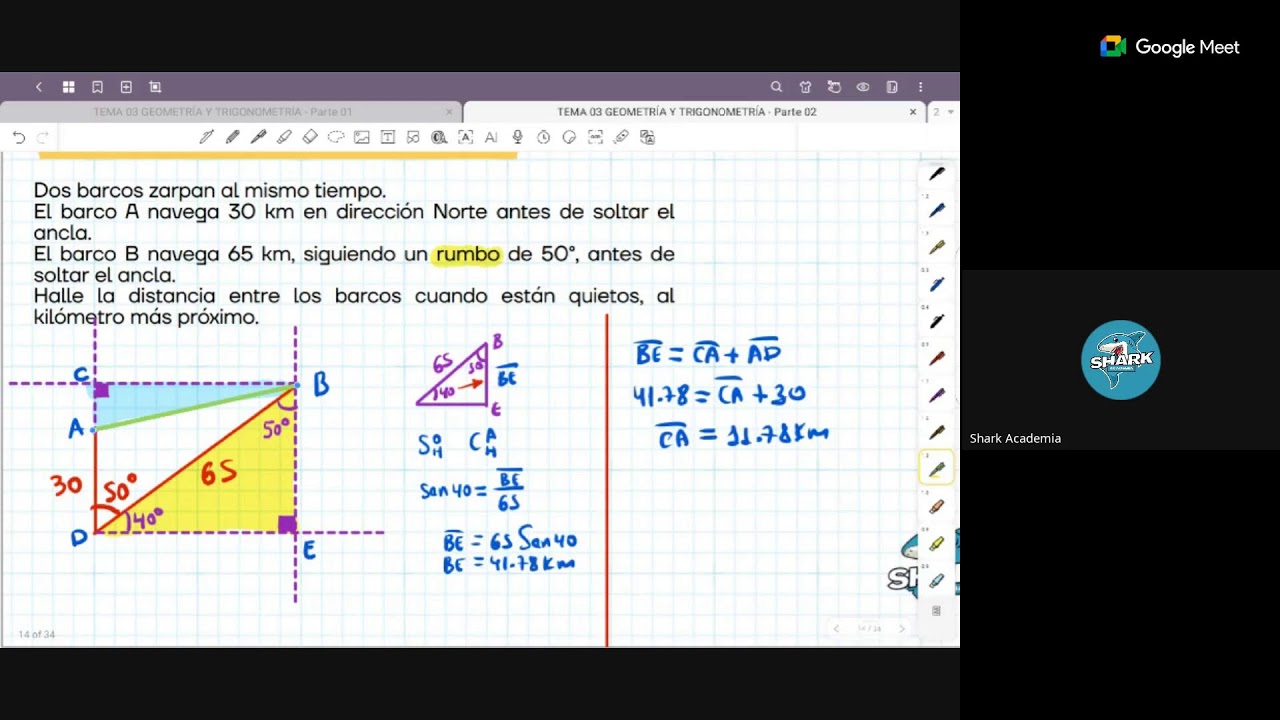 Google Meet
TEMA 03 GEOMETRÍA Y TRIGONOMETRÍA - Parte 01
TEMA 03 GEOMETRÍA Y TRIGONOMETRÍA - Parte 02
2
Dos barcos zarpan al mismo tiempo.
El barco A navega 30 km en dirección Norte antes de soltar el
ancla.
El barco B navega 65 km, siguiendo un rumbo de 50°, antes de
soltar el ancla.
Halle la distancia entre los barcos cuando están quietos, al
kilómetro más próximo.
C
B
A
50°
30
50°
65
40°
D
E
B
65
50
BE
40
E
S O/H C A/H
Sen 40 = BE/65
BE = 65 Sen 40
BE = 41.78 Km
BE = CA + AD
41.78 = CA + 30
CA = 11.78 Km
14 of 34
14 / 34
SHARK
Shark Academia